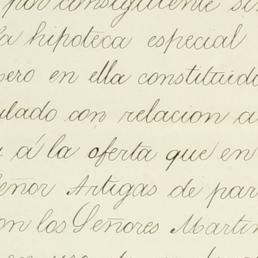 por consiguiente sin
la hipoteca especial
pero en ella constituida
ulado con relacion a
á la oferta que en
Señor Artigas de par
on los Señores Martin